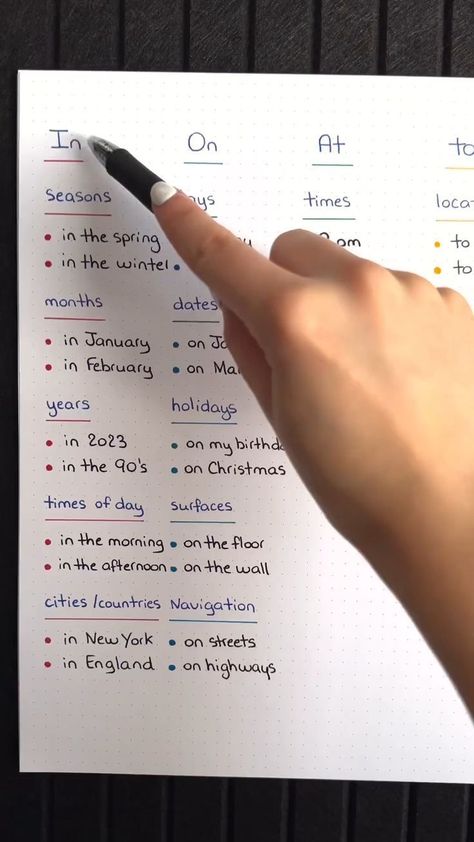 In
seasons
in the spring
in the winter
months
in January
in February
years
in 2023
in the 90's
times of day
in the morning
in the afternoon
cities/countries
in New York
in England
On
dates
on
on
holidays
on my
on Christmas
surfaces
on the floor
on the wall
Navigation
on streets
on highways
At
times
pm
to
to
to